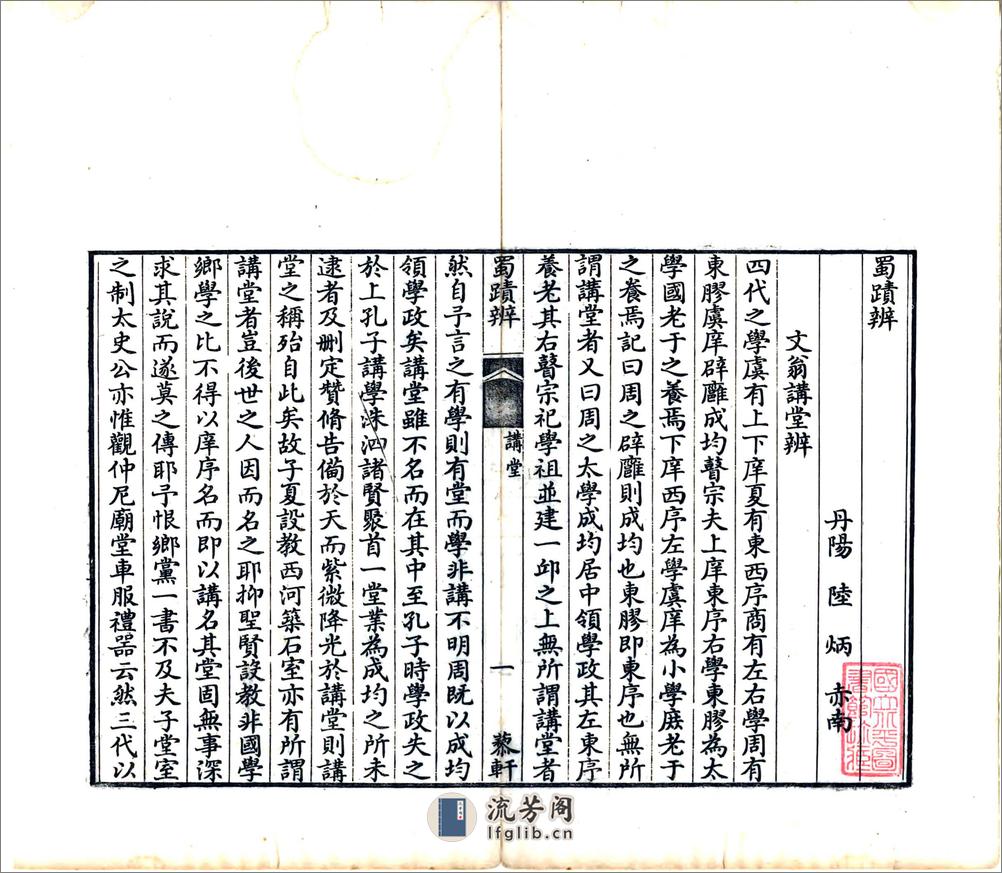 蜀蹟辨
丹陽 陸 炳 赤南
文翁講堂辨
四代之學虞有上下庠夏有東西序商有左右學周有
東膠虞庠辟廱成均瞽宗夫上庠東序右學東膠為太
學國老于之養焉下庠西序左學虞庠為小學庶老于
之養焉記曰周之辟廱則成均也東膠即東序也無所
謂講堂者又曰周之太學成均居中領學政其左東序
養老其右瞽宗祀學祖並建一邱之上無所謂講堂者
蜀蹟辨
講堂
一
藜軒
然自予言之有學則有堂而學非講不明周既以成均
領學政矣講堂雖不名而在其中至孔子時學政失之
於上孔子講學洙泗諸賢聚首一堂業為成均之所未
逮者及刪定贊脩告備於天而紫微降光於講堂則講
堂之稱殆自此矣故子夏設教西河築石室亦有所謂
講堂者豈後世之人因而名之耶抑聖賢設教非國學
鄉學之比不得以庠序名而即以講名其堂固無事深
求其說而遂莫之傳耶予恨鄉黨一書不及夫子堂室
之制太史公亦惟觀仲尼廟堂車服禮器云然三代以
流芳阁
lfglib.cn